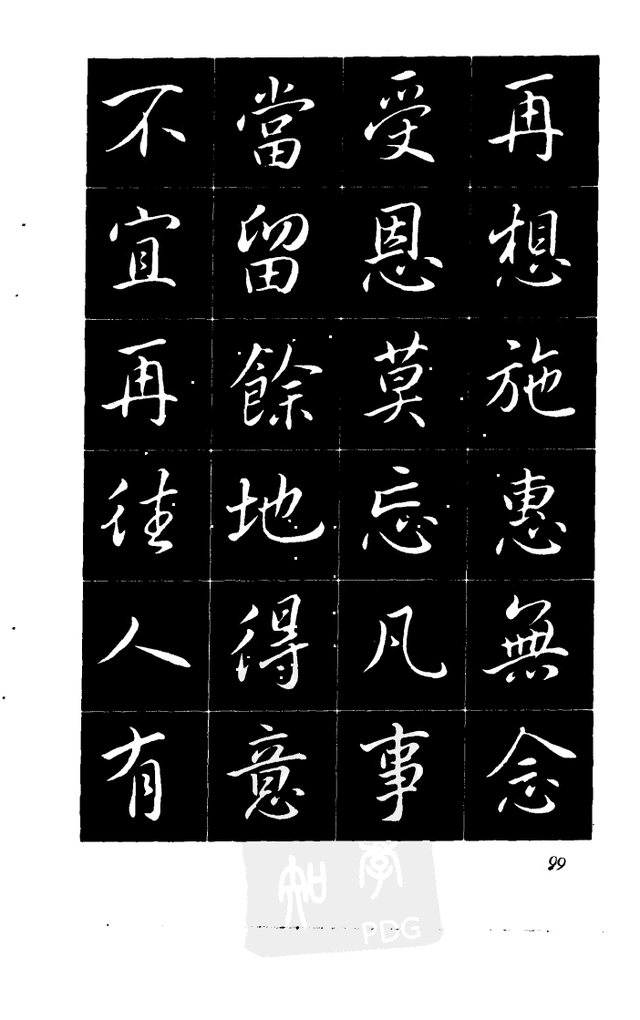 再想施惠無念
受恩莫忘凡事
當留餘地得意
不宜再往人有
99
PDG